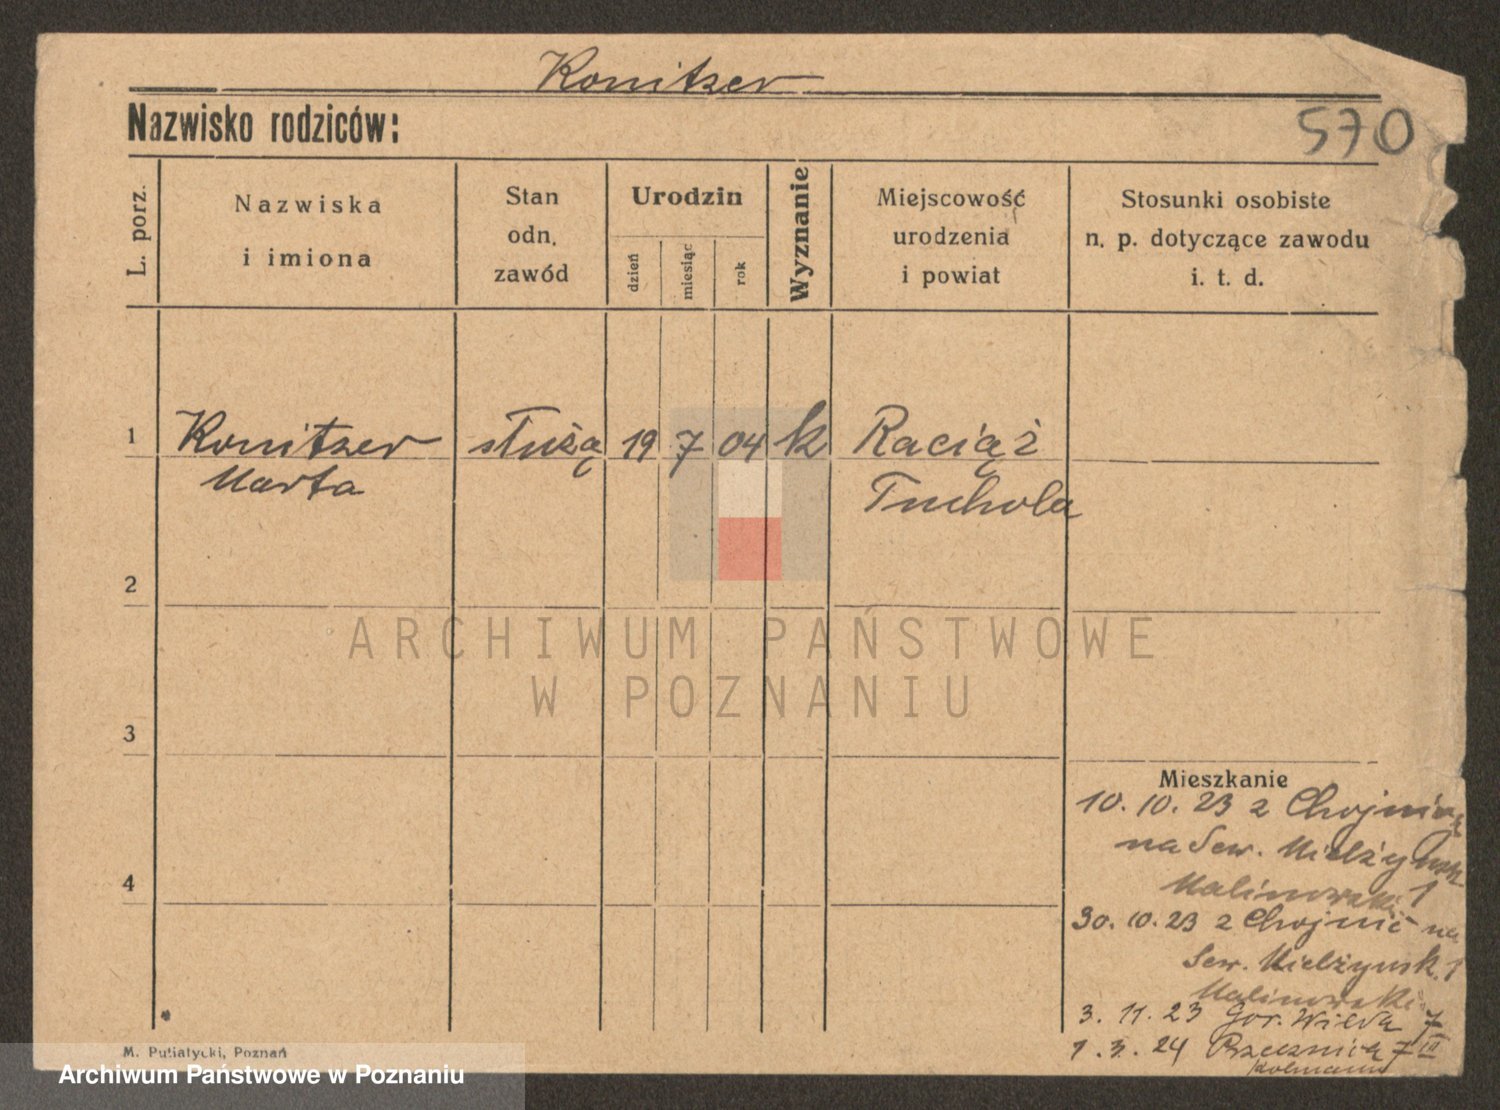 Konitzer
Nazwisko rodziców:
570
L. porz.
Nazwiska
i imiona
Stan
odn.
zawód
Urodzin
dzień
miesiąc
rok
Wyznanie
Miejscowość
urodzenia
i powiat
Stosunki osobiste
n. p. dotyczące zawodu
i. t. d.
1 Konitzer służą 19 7 04 k Raciąż
Marta Tuchola
2
ARCHIWUM PAŃSTWOWE
W POZNANIU
3
Mieszkanie
10. 10. 23 z
na Sew.
Malinowski 1
4
30. 10. 23 z Chojnic na
Sew. Mielżyńsk. 1
Malinowski
3. 11. 23 Gór. Wilda 7
1. 3. 24
M. Putiatycki, Poznań
Archiwum Państwowe w Poznaniu